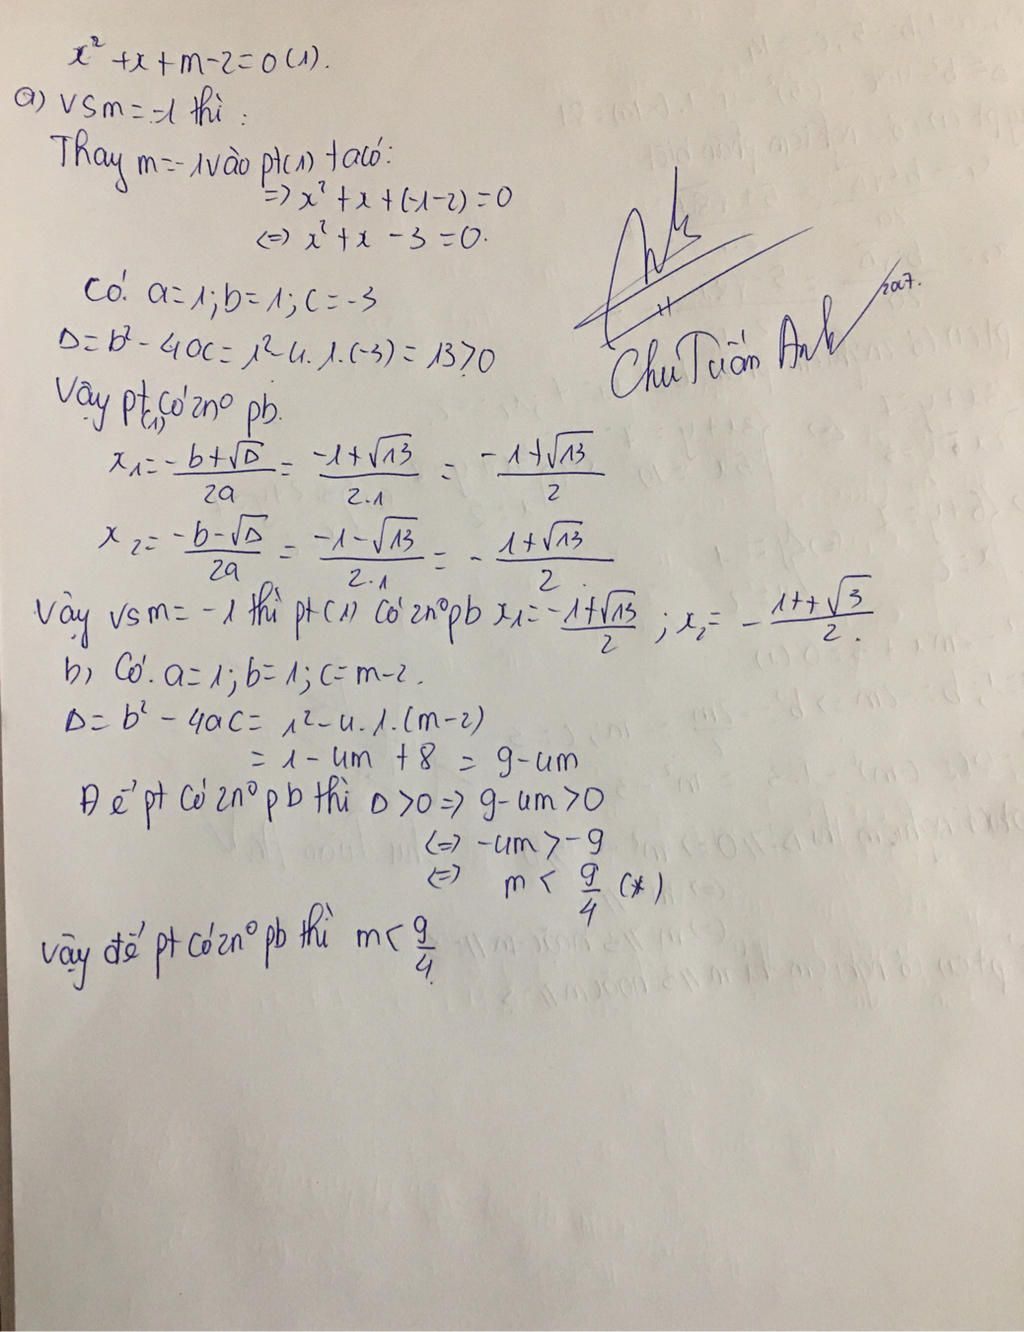 x² + x + m - 2 = 0 (1).
a) VS m = -1 thì :
Thay m = -1 vào pt (1) ta có:
=> x² + x + (-1 - 2) = 0
<=> x² + x - 3 = 0.
Có. a = 1; b = 1; c = -3
Δ = b² - 4ac = 1² - 4. 1. (-3) = 13 > 0
Vậy pt (1) có 2n⁰ pb.
x₁ = (-b + √Δ)/2a = (-1 + √13)/2.1 = (-1 + √13)/2
x₂ = (-b - √Δ)/2a = (-1 - √13)/2.1 = - (1 + √13)/2
Vậy vs m = -1 thì pt (1) có 2n⁰ pb x₁ = (-1 + √13)/2 ; x₂ = - (1 + + √3)/2.
b, Có. a = 1; b = 1; c = m - 2.
Δ = b² - 4ac = 1² - 4. 1. (m - 2)
= 1 - 4m + 8 = 9 - 4m
Để pt có 2n⁰ pb thì Δ > 0 => 9 - 4m > 0
<=> -4m > -9
<=> m < 9/4 (*)
Vậy để pt có 2n⁰ pb thì m < 9/4.
Chu Tuấn Anh